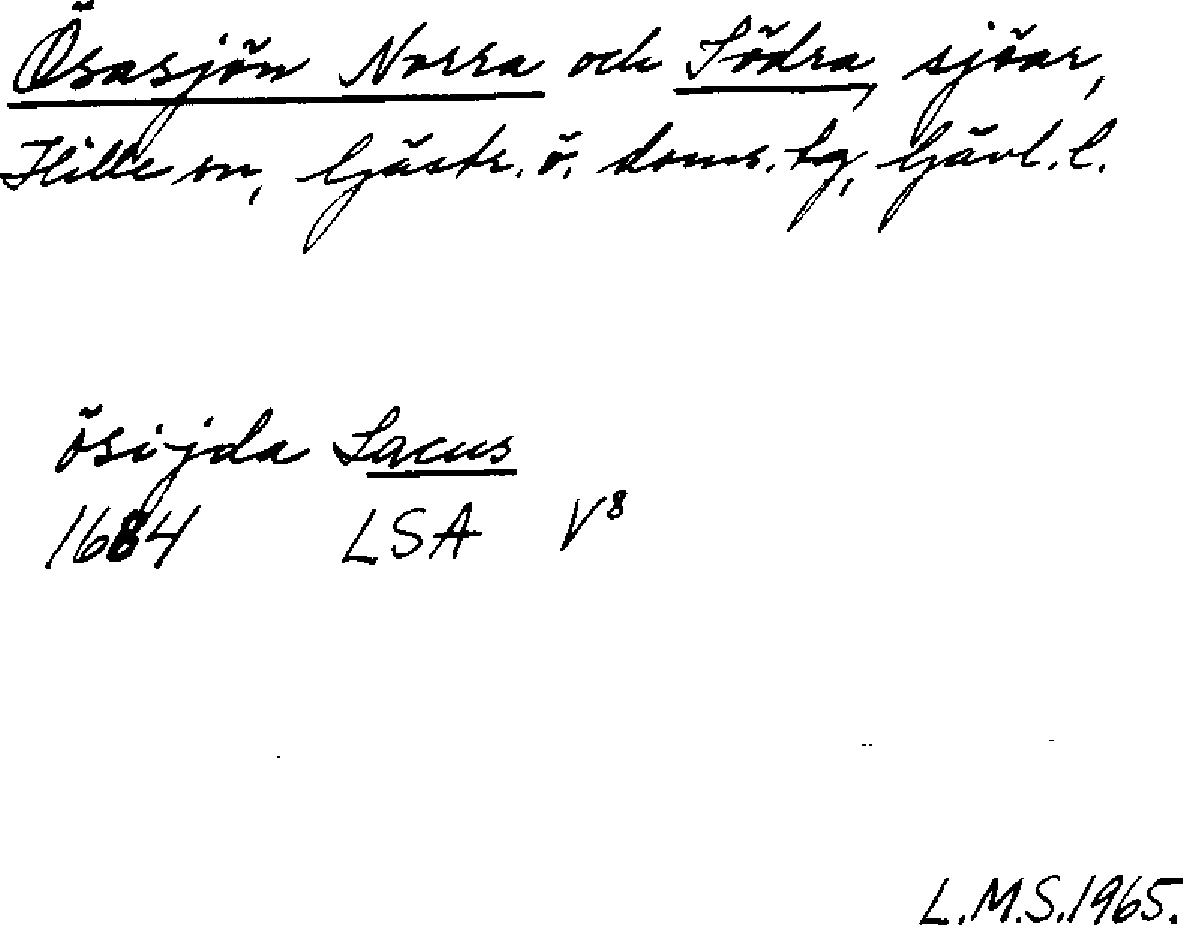 Ösasjön Norra och Södra, sjöar,
Hille sn, Gästr. ö. doms. tg, Gävl. l.
ösijda Lacus
1684 LSA V8
L.M.S. 1965.